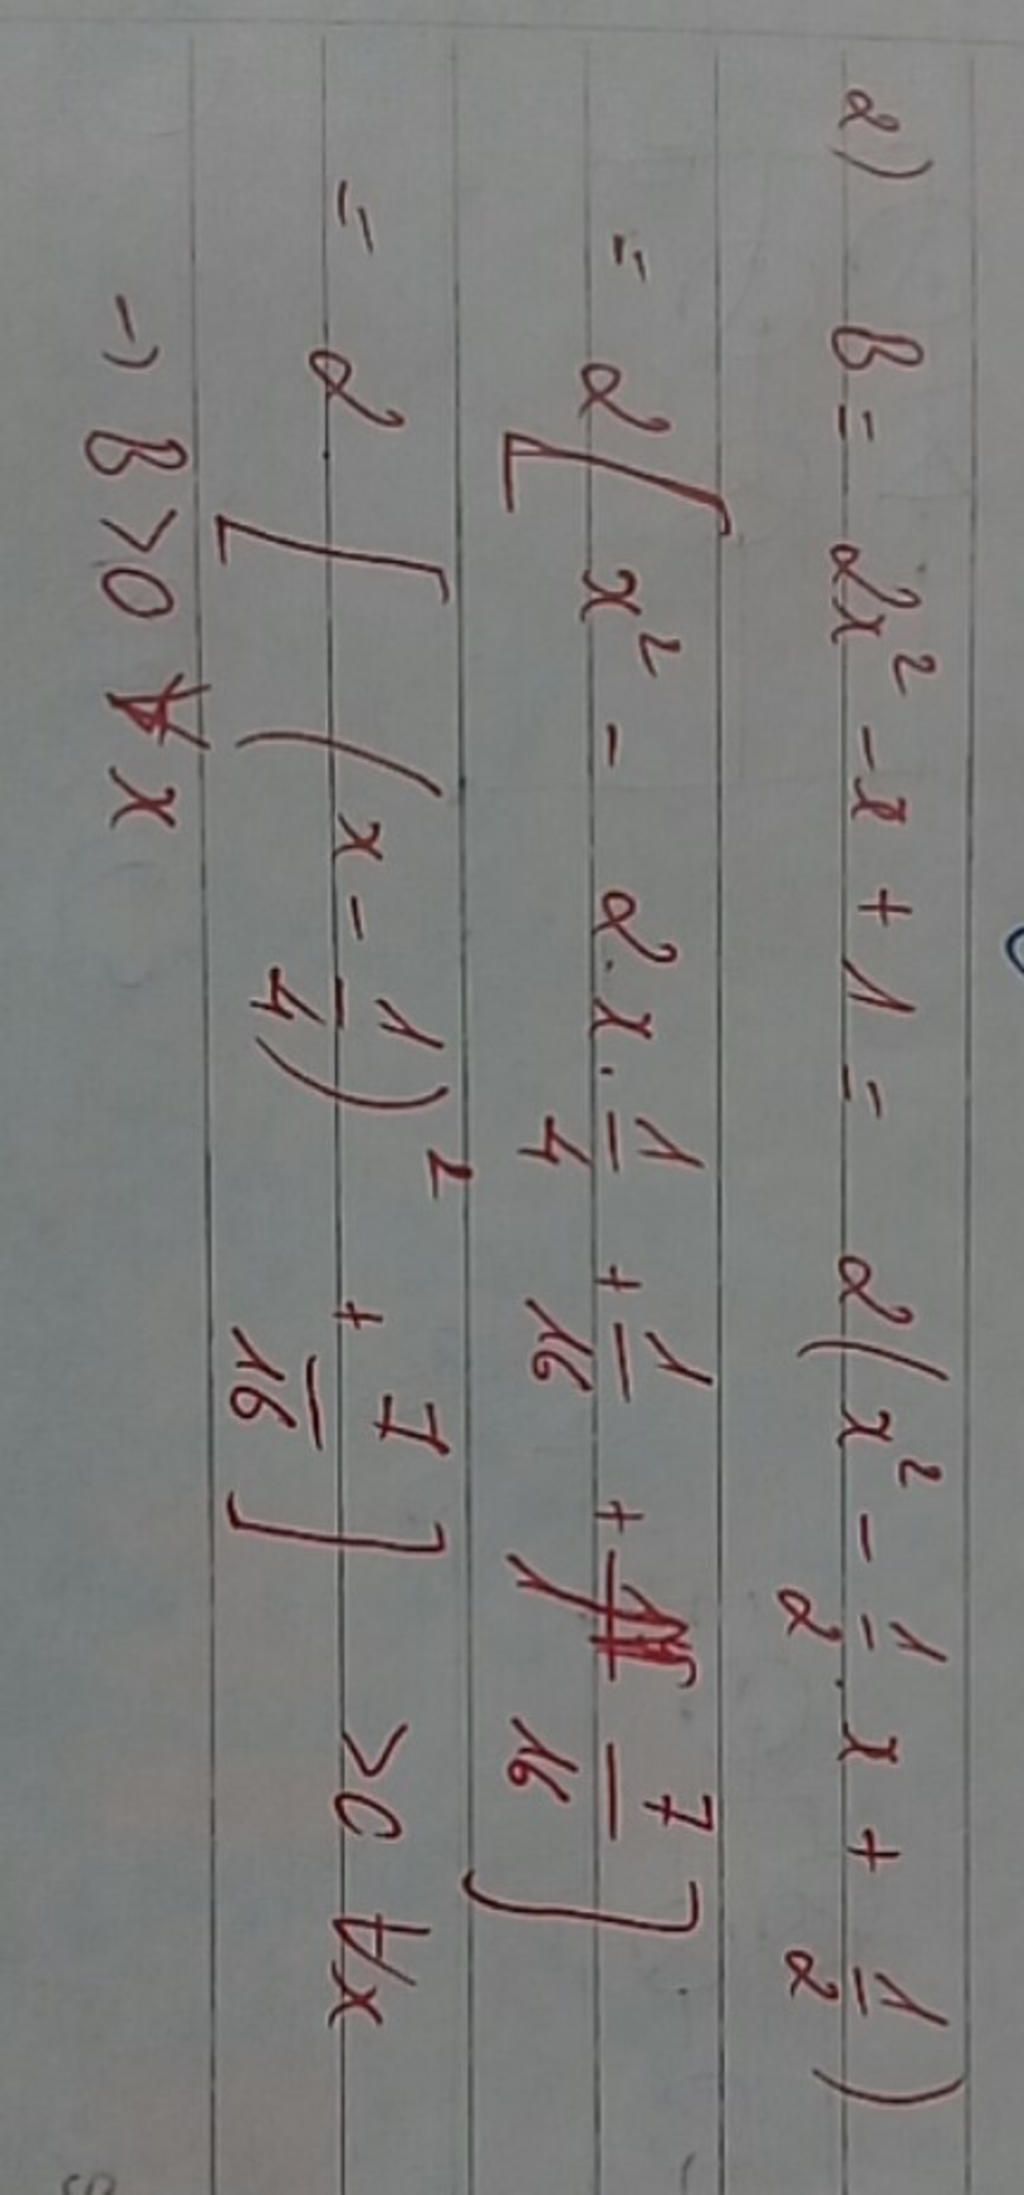 2) B = 2x² - x + 1 = 2(x² - 1/2 . x + 1/2)
= 2[x² - 2.x.1/4 + 1/16 + 7/16]
= 2[(x - 1/4)² + 7/16] > 0 ∀x
→ B > 0 ∀x